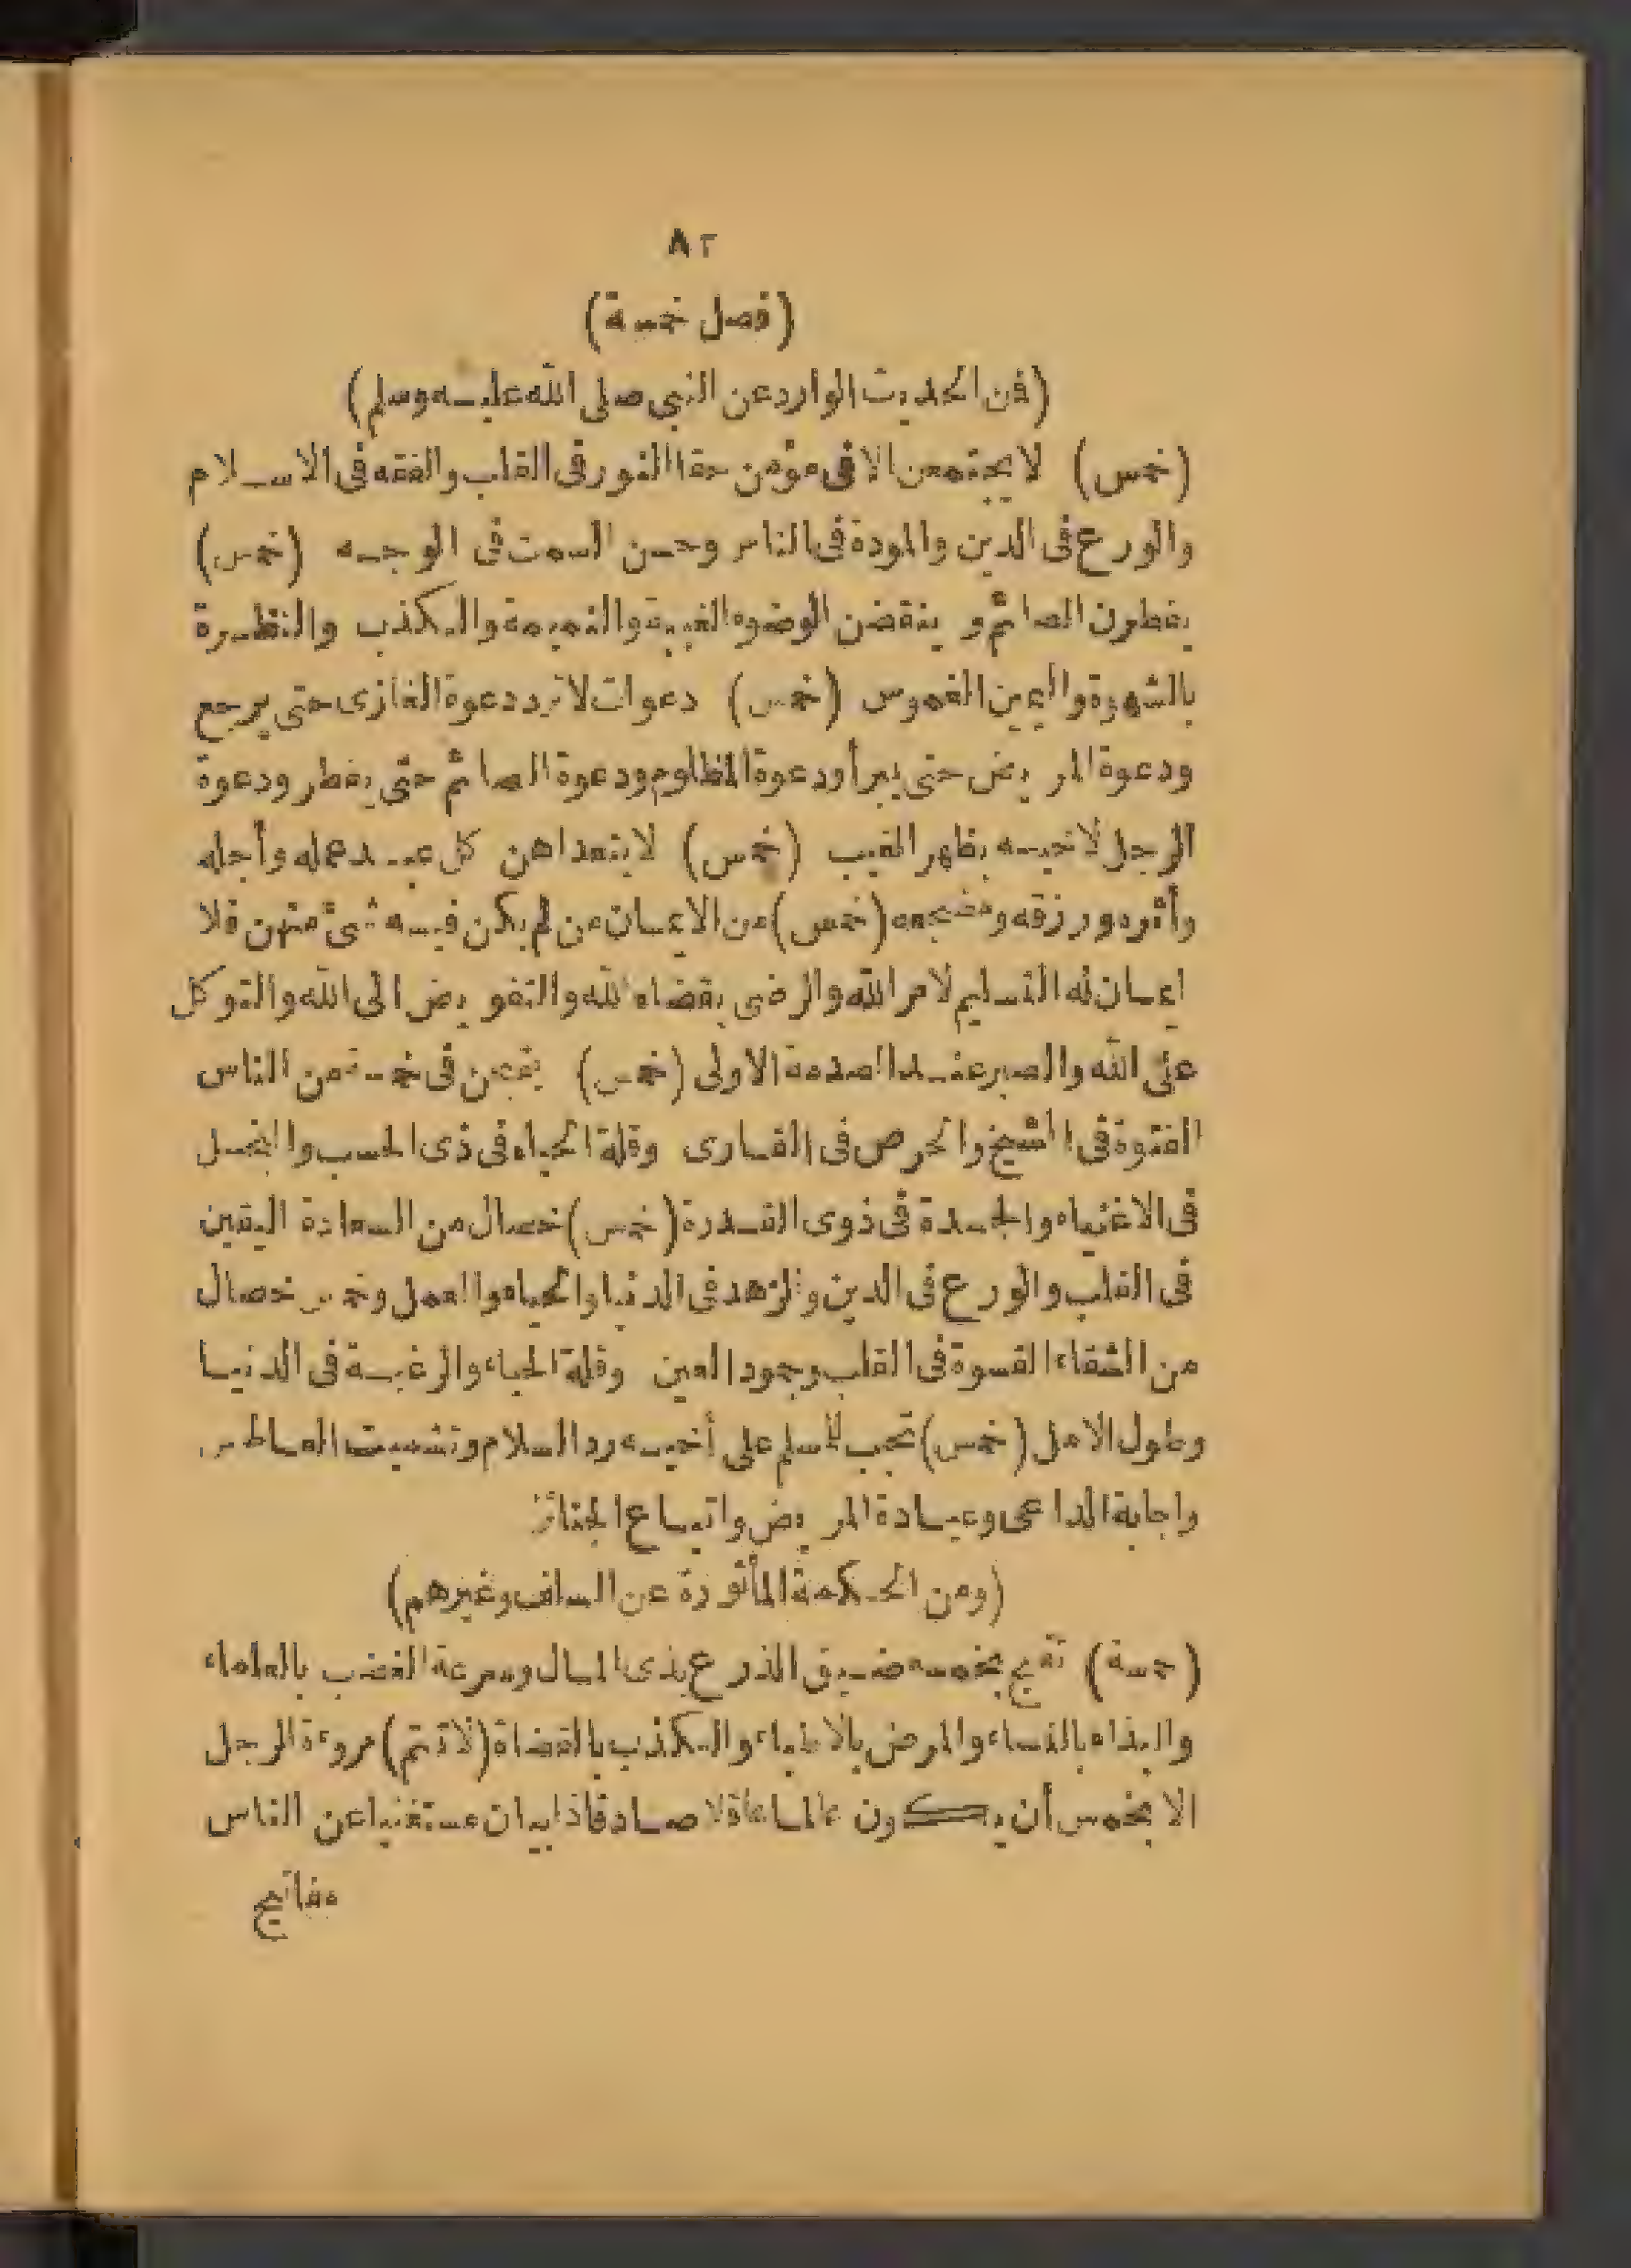 ٨٢
(فصل خمسة)
(فمن الحديث الوارد عن النبي صلى الله عليه وسلم)
(خمس) لا يجتمعن الا فى مؤمن حقا النور فى القلب والفقه فى الاسلام
والورع فى الدين والمودة فى الناس وحسن السمت فى الوجه (خمس)
يفطرن الصائم و ينقضن الوضوء الغيبة والنميمة والكذب والنظرة
بالشهوة واليمين الغموس (خمس) دعوات لا ترد دعوة الغازى حتى يرجع
ودعوة المريض حتى يبرأ ودعوة المظلوم ودعوة الصائم حتى يفطر ودعوة
الرجل لاخيه بظهر الغيب (خمس) لا يتعداهن كل عبد عمله وأجله
وأثره ورزقه ومضجعه (خمس) من الايمان من لم يكن فيه شئ منهن فلا
ايمان له التسليم لامر الله والرضى بقضاء الله والتفويض الى الله والتوكل
على الله والصبر عند الصدمة الاولى (خمس) يقبحن فى خمسة من الناس
الفتوة فى الشيخ والحرص فى القارى وقلة الحياء فى ذى الحسب والبخل
فى الاغنياء والحدة فى ذوى القدرة (خمس) خصال من السعادة اليقين
فى القلب والورع فى الدين والزهد فى الدنيا والحياء والعمل وخمس خصال
من الشقاء القسوة فى القلب وجمود العين وقلة الحياء والرغبة فى الدنيا
وطول الامل (خمس) تجب للمسلم على أخيه رد السلام وتشميت العاطس
واجابة الداعى وعيادة المريض واتباع الجنائز
(ومن الحكمة المأثورة عن السلف وغيرهم)
(خمسة) تقبح بخمسه ضيق الذرع بذى المال وسرعة الغضب بالعلماء
والبذاء بالنساء والمرض بالاطباء والكذب بالقضاة (لا تتم) مروءة الرجل
الا بخمس أن يكون عالما عاقلا صادقا ذا بيان مستغنيا عن الناس
مفاتيح